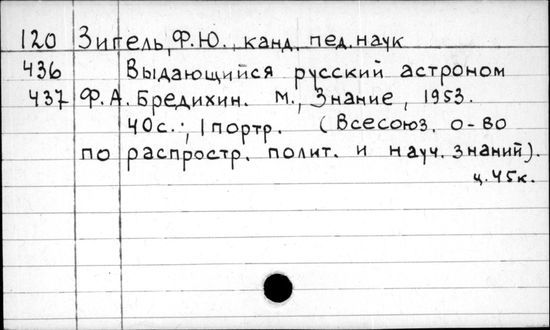 120 Зигель, Ф.Ю., канд. пед. наук
436 Выдающийся русский астроном
437 Ф.А. Бредихин. М., Знание, 1953.
40с.; 1 портр. (Всесоюз. о-во
по распростр. полит. и науч. знаний).
ц. 45к.